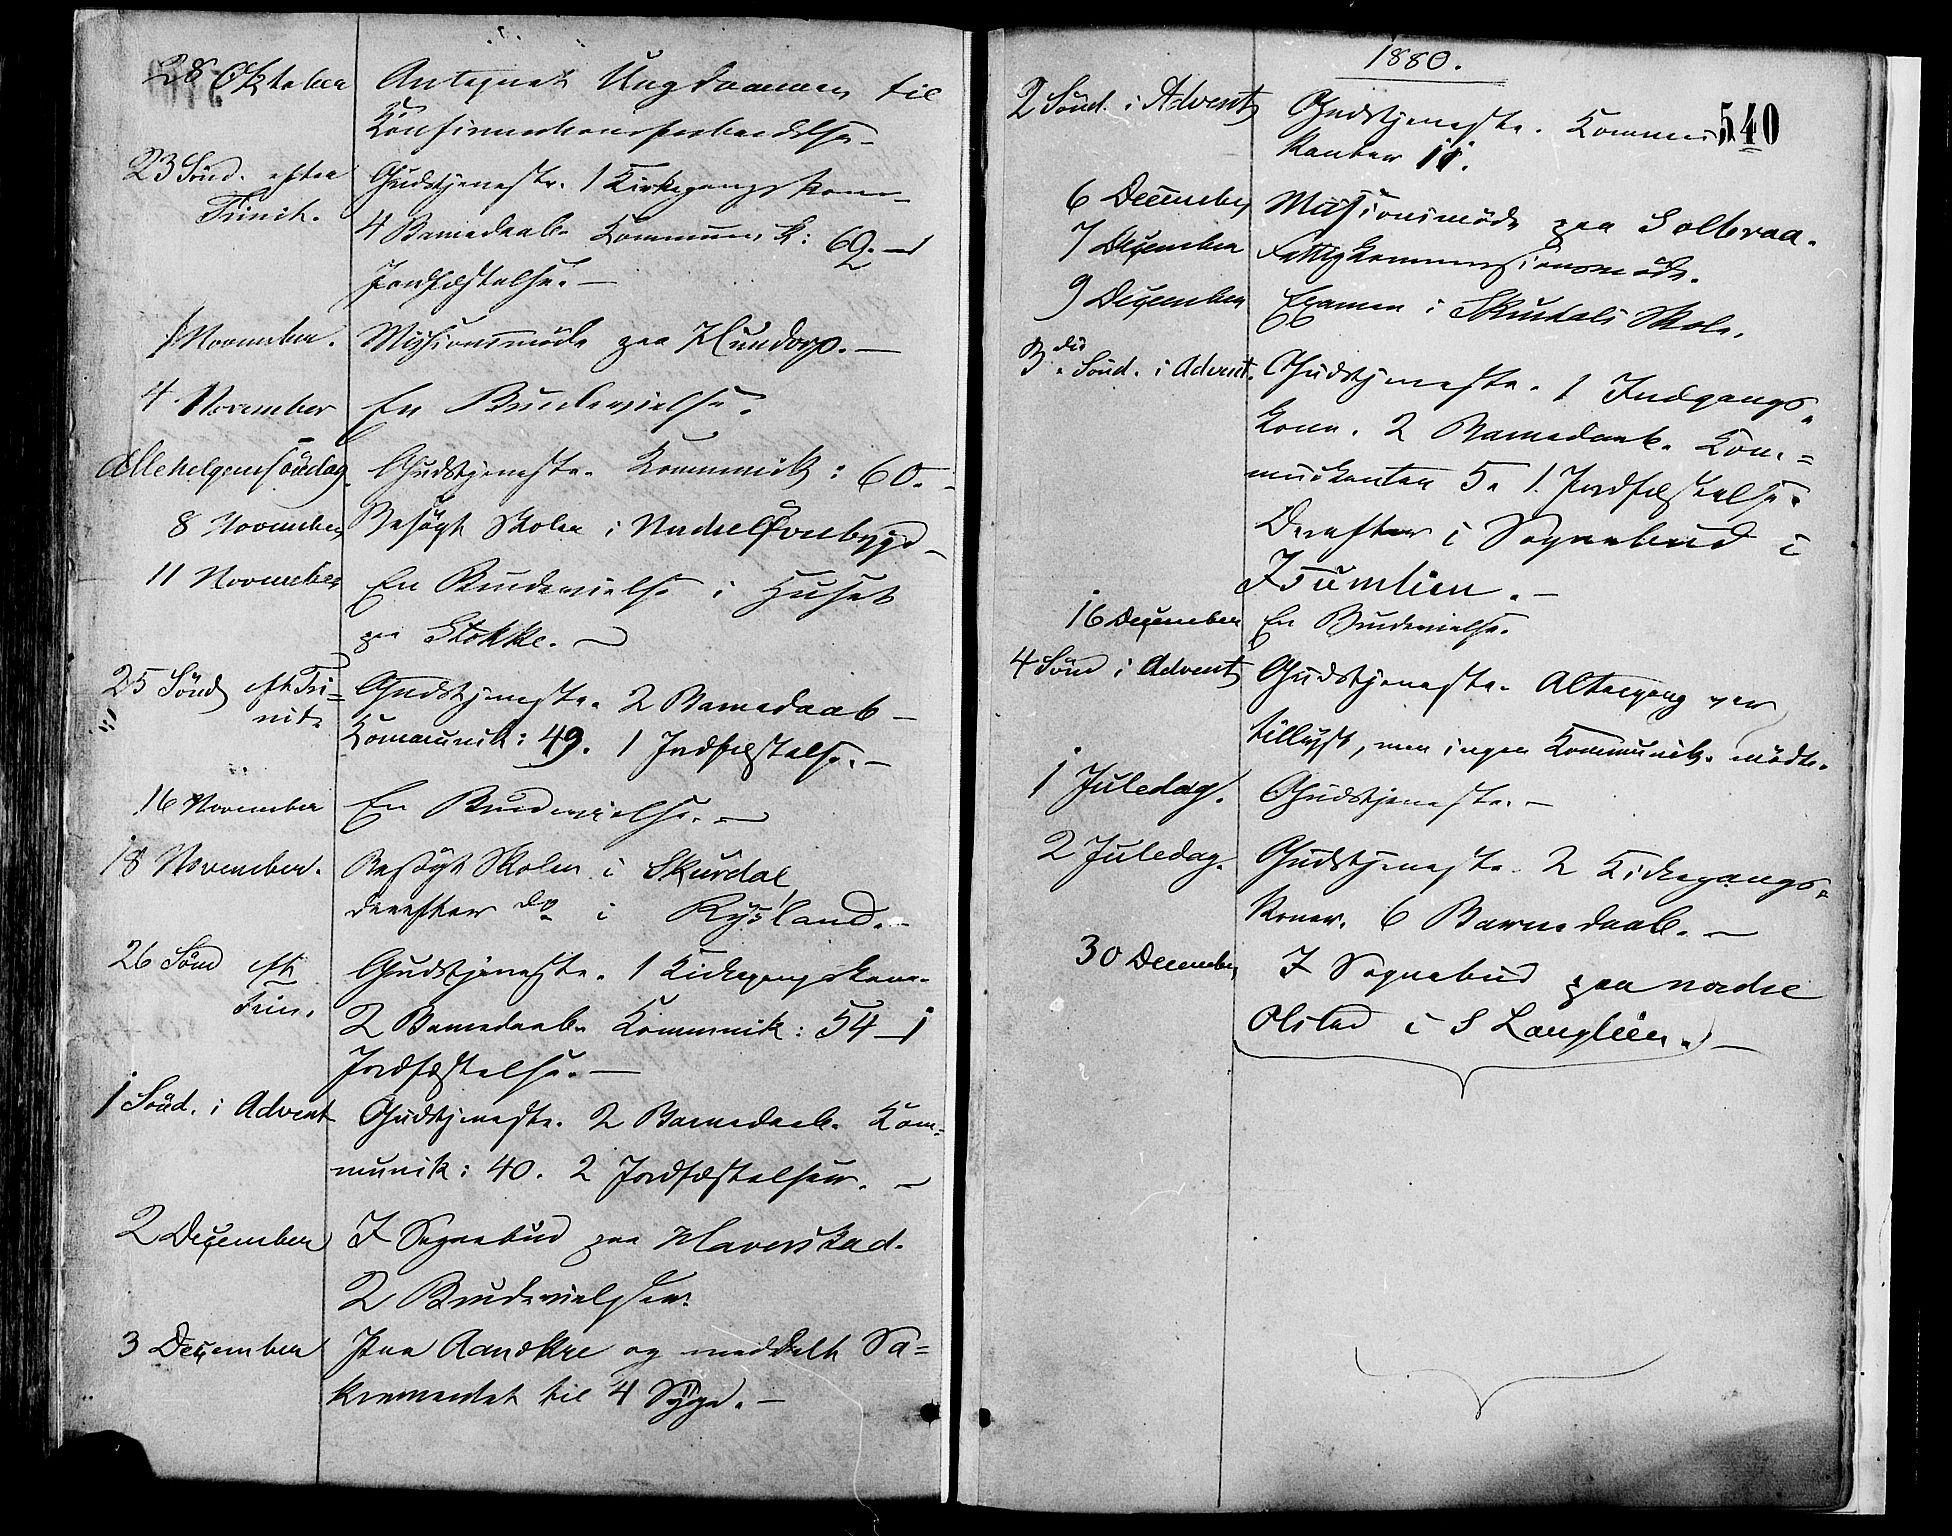 28 Oktober Antegnet Ungdommen til
Konfirmationsforberedelse.
23 Sönd. efter Gudstjeneste. 1 Kirkegangskone
Trinit. 4 Barnedaab. Kommunik: 69. — 1
Jordfæstelse. —
1 November. Missionsmöde paa Hundorp. —
4 November En Brudevielse.
Allehelgensöndag. Gudstjeneste. Kommunik: 60. —
8 November Besögt Skolen i Nedre
11 November En Brudevielse i Huset
paa Stokke. —
25 Sönd eft Tri= Gudstjeneste. 2 Barnedaab —
nit. Kommunik: 49. 1 Jordfæstelse. —
16 November En Brudevielse. —
18 November. Besögt Skolen i Skurdal,
derefter do i Rysland. —
26 Sönd eft Gudstjeneste. 1 Kirkegangskone.
Trin. 2 Barnedaab. Kommunik: 54 — 1
Jordfæstelse. —
1 Sönd. i Advent Gudstjeneste. 2 Barnedaab. Kom=
munik: 40. 2 Jordfæstelser. —
2 December I Sognebud paa Haverstad.
2 Brudevielser.
3 December Paa Aanekre og meddelt Sa=
kramentet til 4 Syge. —
1880.
540
2 Sönd. i Advent Gudstjeneste. Kommuni
kanter 11.
6 December Missionsmöde paa Solbraa.
7 December Fattigkommissionsmöde.
9 December Examen i Skurdals Skole.
3die Sönd. i Advent. Gudstjeneste. 1 Indgangs=
kone. 2 Barnedaab. Kom=
munikanter 5. 1 Jordfæstelse.
Derefter i Sognebud i
Isumlien. —
16 December En Brudevielse.
4 Sönd i Advent Gudstjeneste. Altergang var
tillyst, men ingen Kommunik. mödte.
1 Juledag. Gudstjeneste. —
2 Juledag. Gudstjeneste. 2 Kirkegangs=
koner. 6 Barnedaab. —
30 December I Sognebud paa nordre
Olstad i S Langlien. —